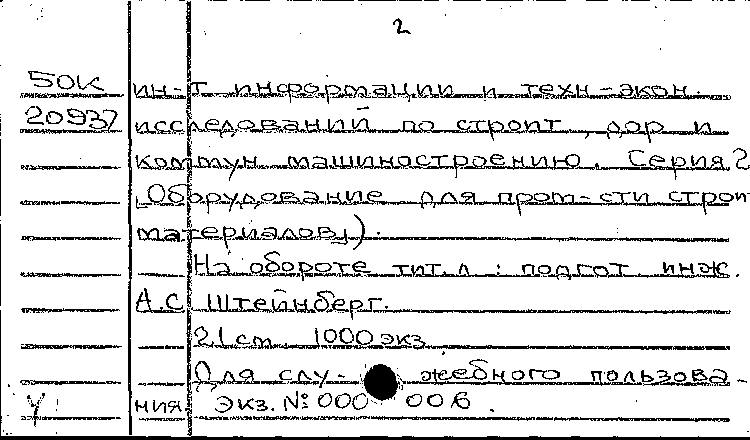 2
50К ин-т информации и техн-экон.
20937 исследований по строит, дор и
коммун машиностроению. Серия 2
"Оборудование для пром-сти строит
материалов").
На обороте тит. л : подгот инж.
А.С Штейнберг.
21 cm 1000 экз
Для слу- жебного пользова-
ния. Экз. № 000 006.